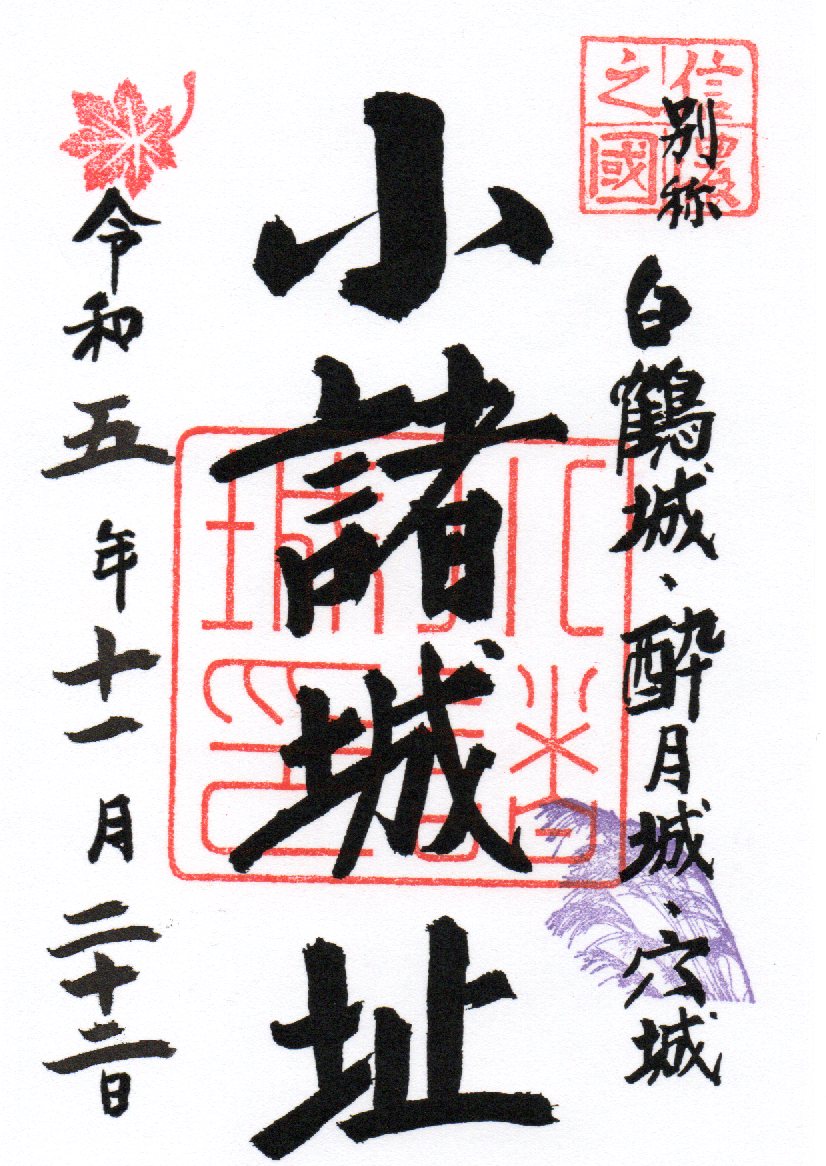 信濃之國
別称 白鶴城、酔月城、穴城
小諸城址
小諸城印
令和五年十一月二十三日